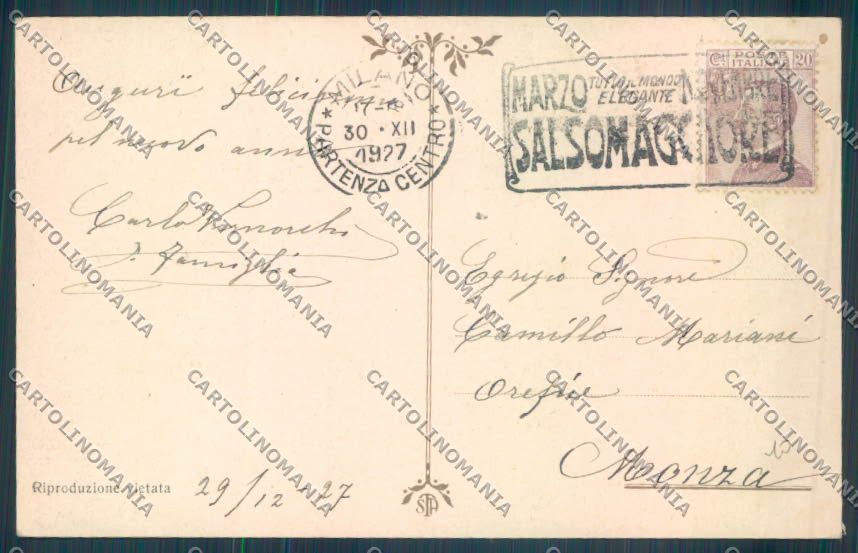 Auguri felicissimi
pel nuovo anno
Carlo
e Famiglia
Riproduzione vietata
29/12-27
MILANO
17-18
30 · XII
1927
★ PARTENZA CENTRO ★
MARZO TUTTO IL MONDO NOVEMBRE
ELEGANTE
SALSOMAGGIORE
Cent POSTE 20
ITALIANE
Egregio Signore
Camillo Mariani
Orefice
Monza
STA
CARTOLINOMANIA